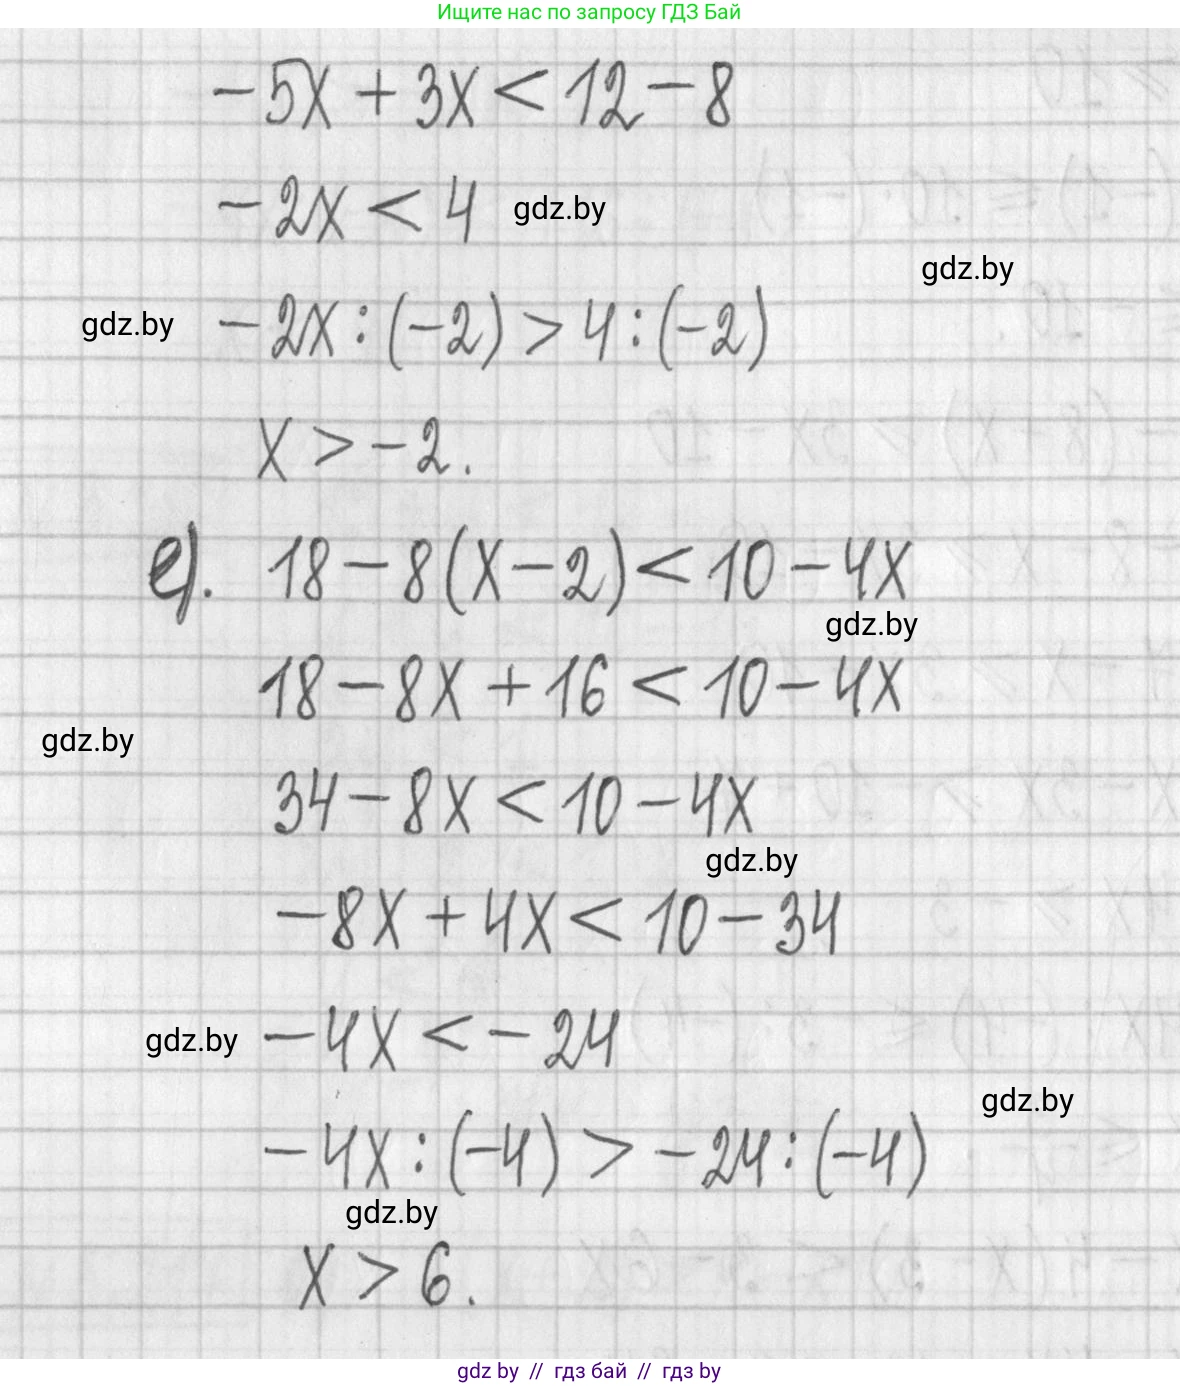 Ищите нас по запросу ГДЗ Бай
-5x + 3x < 12 - 8
-2x < 4
gdz.by
gdz.by
gdz.by
-2x : (-2) > 4 : (-2)
x > -2.
е). 18 - 8(x - 2) < 10 - 4x
gdz.by
18 - 8x + 16 < 10 - 4x
gdz.by
34 - 8x < 10 - 4x
gdz.by
-8x + 4x < 10 - 34
gdz.by
-4x < -24
gdz.by
-4x : (-4) > -24 : (-4)
gdz.by
x > 6.
gdz by // гдз бай // гдз by